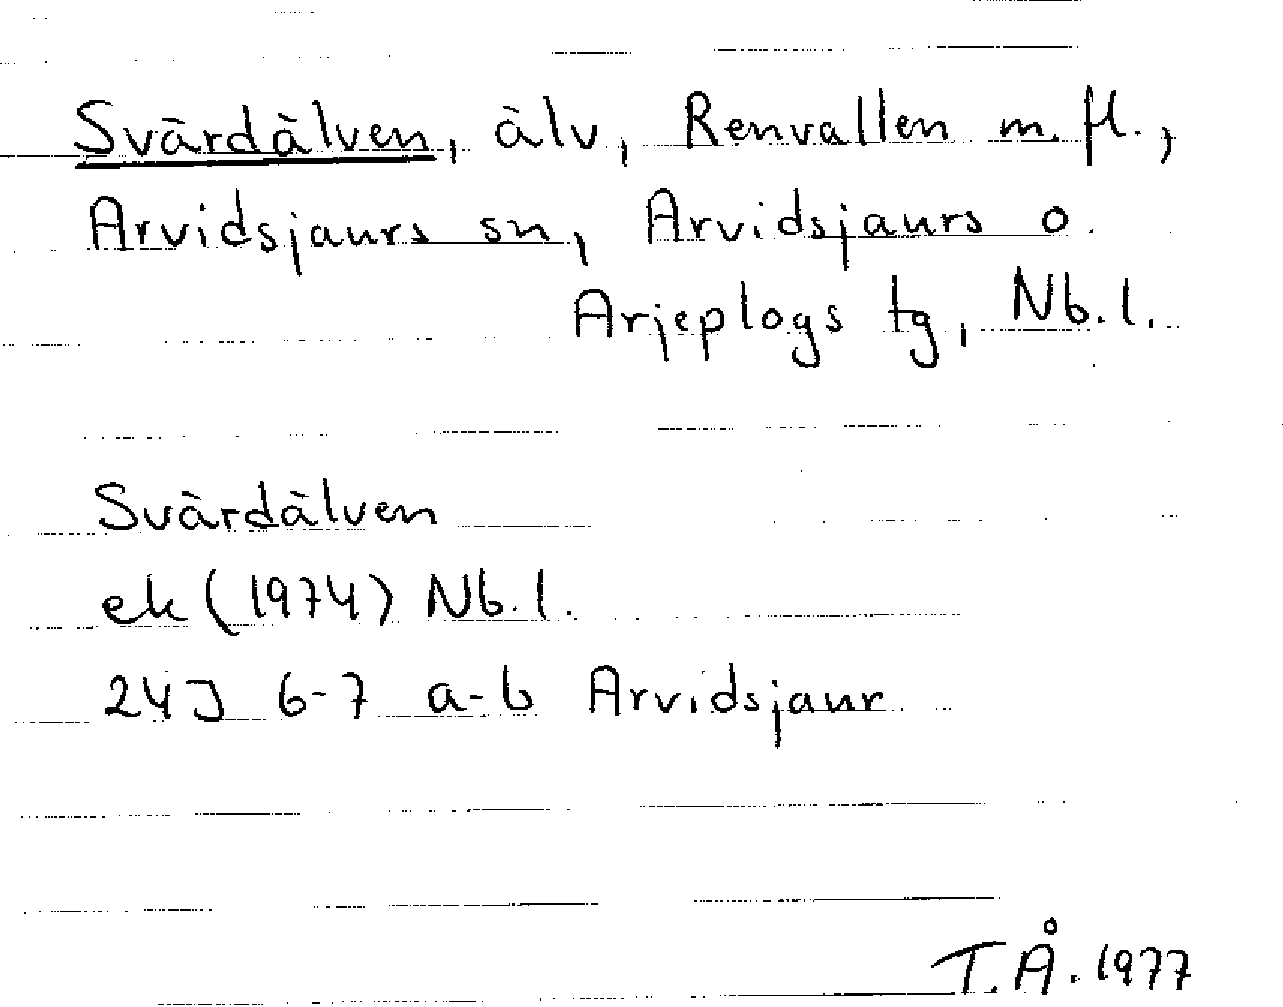 Svärdälven, älv, Renvallen m.fl.,
Arvidsjaurs sn, Arvidsjaurs o.
Arjeplogs tg, Nb.l.
Svärdälven
ek (1974) Nb.l.
24J 6-7 a-b Arvidsjaur
T.Å. 1977